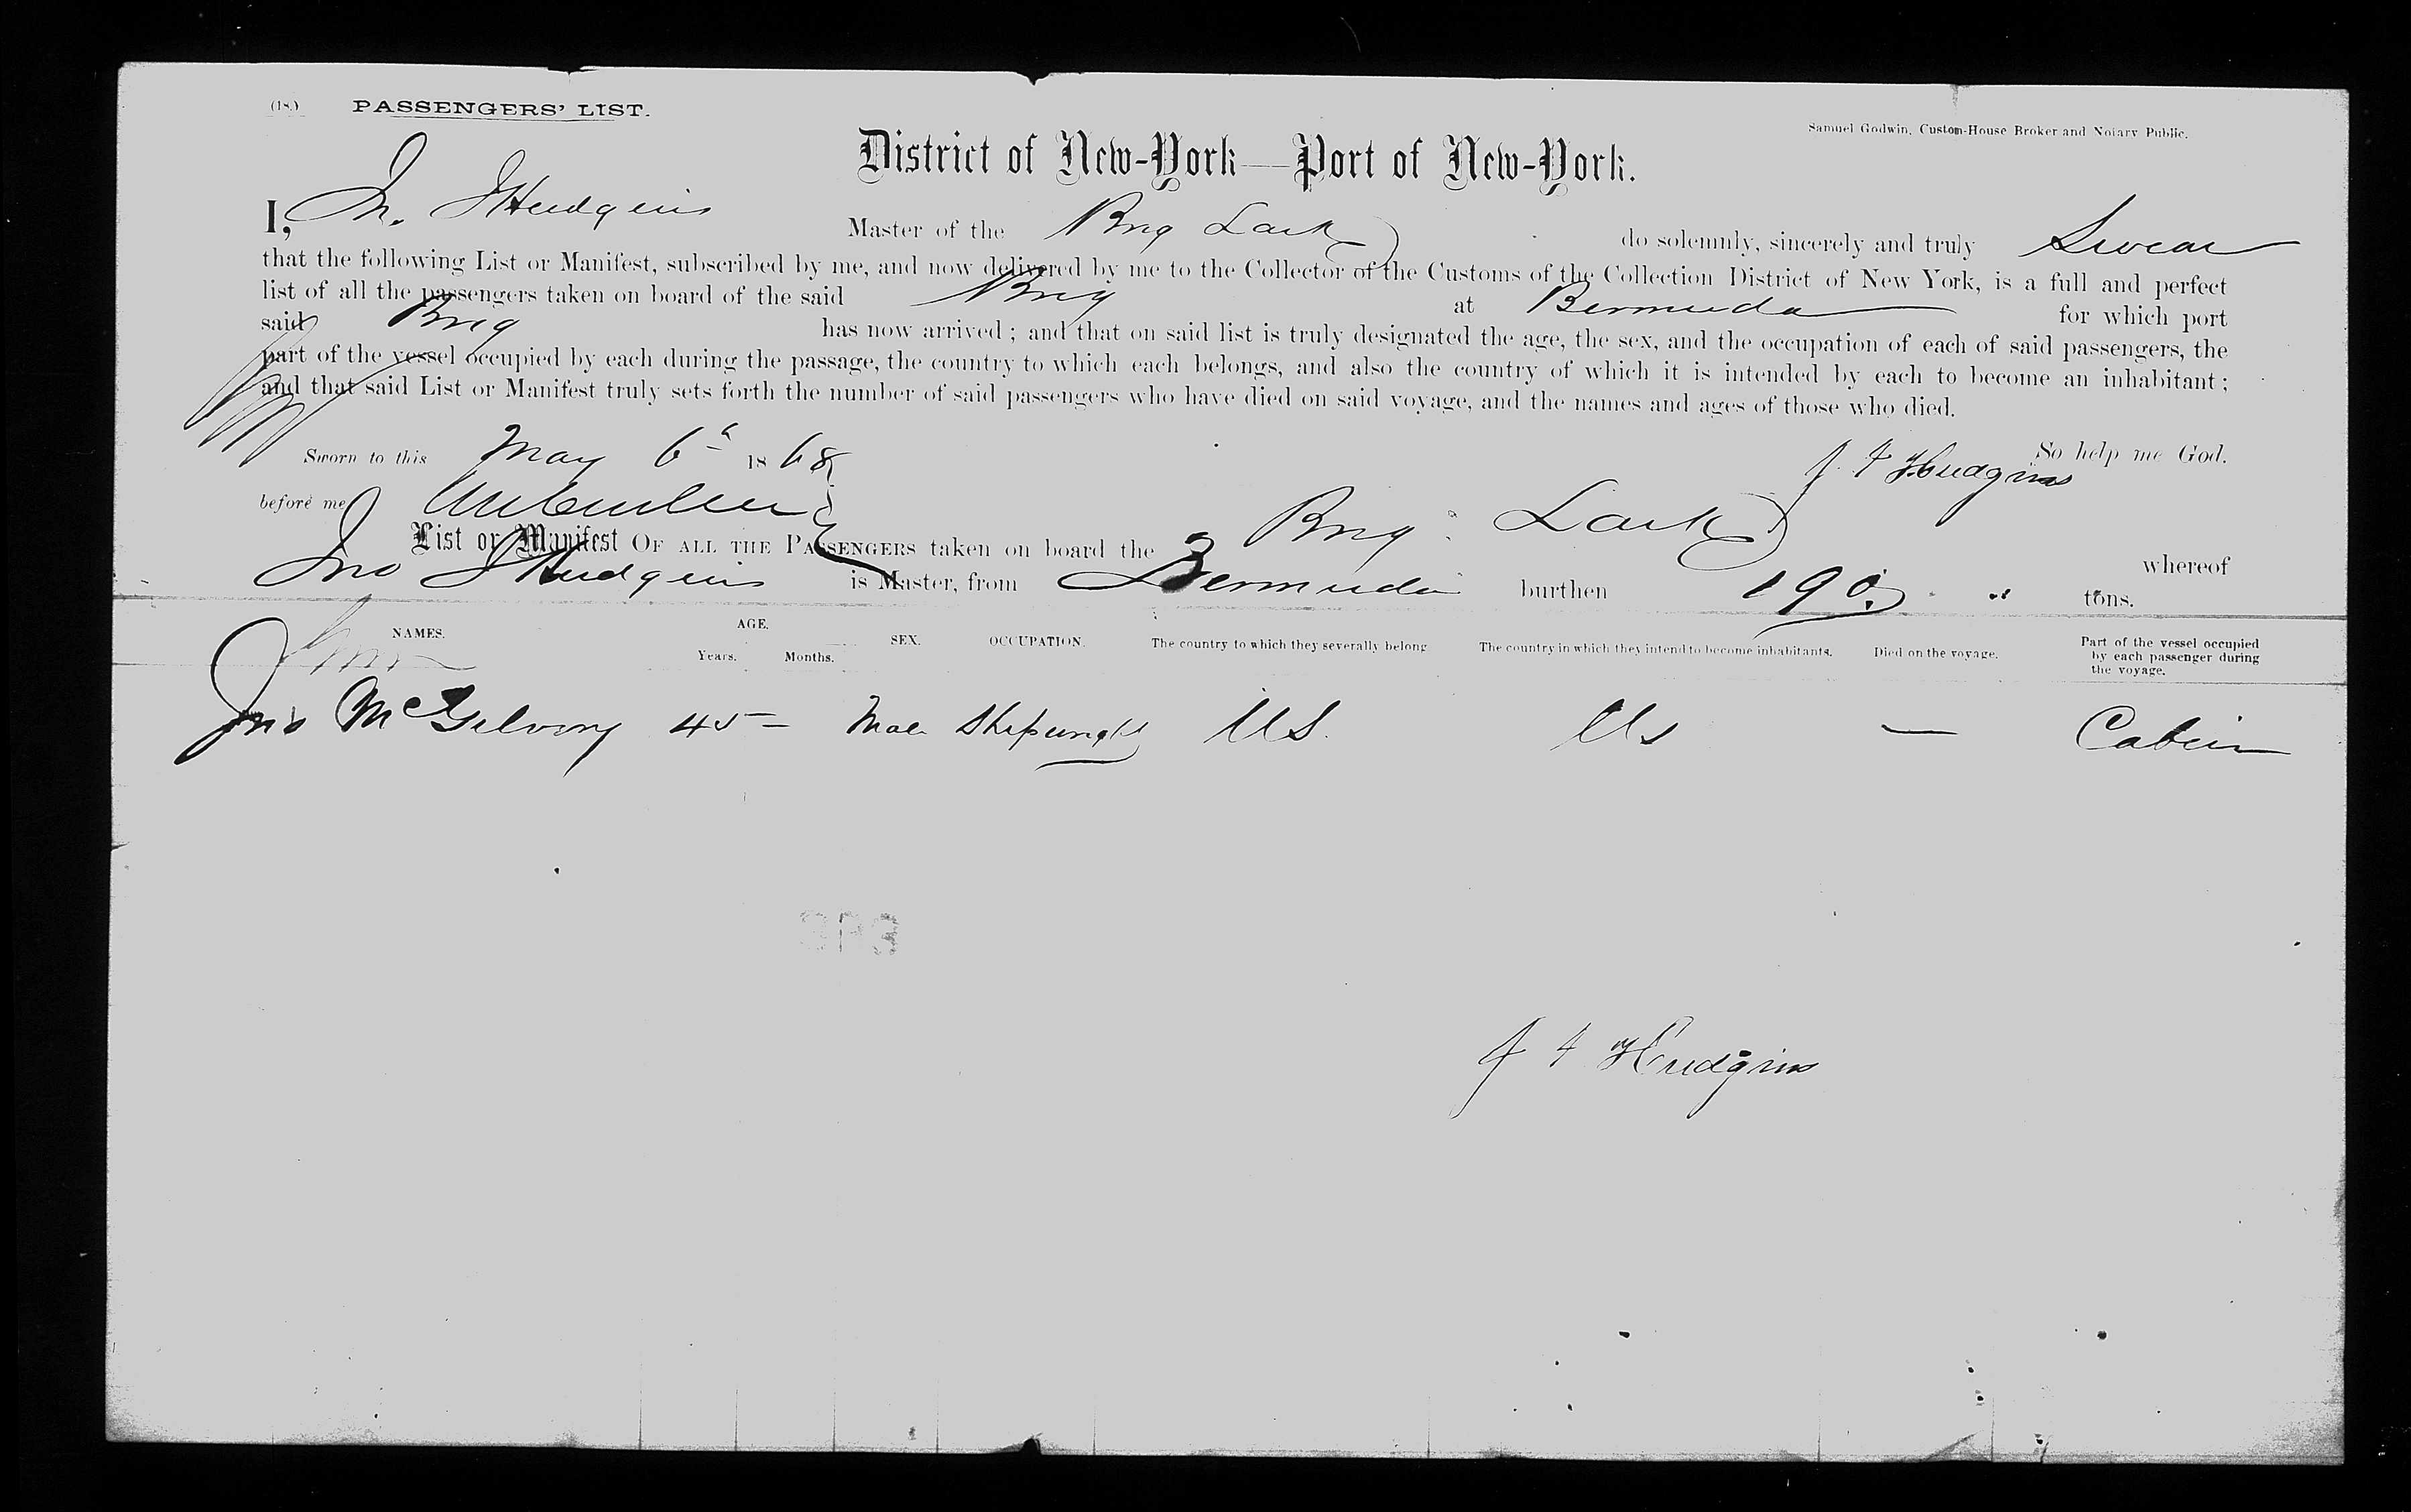 (18.) PASSENGERS' LIST.
Samuel Godwin, Custom-House Broker and Notary Public.
District of New-York—Port of New-York.
I, Jn. J Hudgins Master of the Brig Lark do solemnly, sincerely and truly Swear
that the following List or Manifest, subscribed by me, and now delivered by me to the Collector of the Customs of the Collection District of New York, is a full and perfect
list of all the passengers taken on board of the said Brig at Bermuda for which port
said Brig has now arrived; and that on said list is truly designated the age, the sex, and the occupation of each of said passengers, the
part of the vessel occupied by each during the passage, the country to which each belongs, and also the country of which it is intended by each to become an inhabitant;
and that said List or Manifest truly sets forth the number of said passengers who have died on said voyage, and the names and ages of those who died.
So help me God.
Sworn to this May 6th 1868 J J Hudgins
before me
List or Manifest OF ALL THE PASSENGERS taken on board the Brig Lark whereof
Jno J Hudgins is Master, from Bermuda burthen 190 tons.
NAMES. AGE. Years. Months. SEX. OCCUPATION. The country to which they severally belong The country in which they intend to become inhabitants. Died on the voyage. Part of the vessel occupied by each passenger during the voyage.
Jno McGilvory 45 — Male Shipwright US. Us — Cabin
J J Hudgins